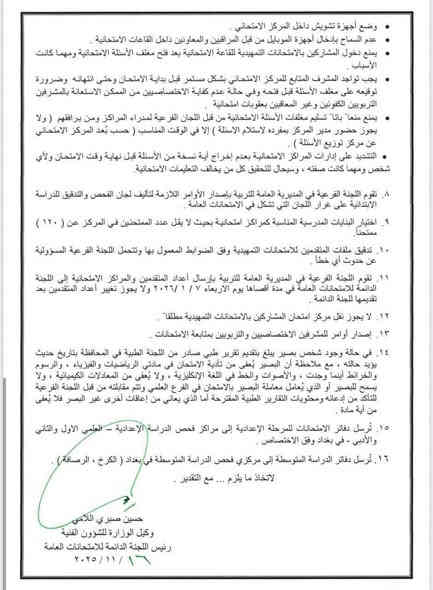 • وضع أجهزة تشويش داخل المركز الامتحاني .
• عدم السماح بإدخال أجهزة الموبايل من قبل المراقبين والمعاونين داخل القاعات الامتحانية .
• يمنع دخول المشاركين بالامتحانات التمهيدية للقاعة الامتحانية بعد فتح مغلف الأسئلة الامتحانية ومهما كانت
الأسباب .
• يجب تواجد المشرف المتابع للمركز الامتحاني بشكل مستمر قبل بداية الامتحان وحتى انتهائه وضرورة
توقيعه على مغلف الأسئلة قبل فتحه وفي حالة عدم كفاية الاختصاصيين من الممكن الاستعانة بالمشرفين
التربويين الكفوئين وغير المعاقبين بعقوبات امتحانية .
• يمنع منعاً باتاً تسليم مغلفات الأسئلة الامتحانية من قبل اللجان الفرعية لمدراء المراكز ومن يرافقهم ( ولا
يجوز حضور مدير المركز بمفرده لاستلام الاسئلة ) إلا في الوقت المناسب ( حسب بُعد المركز الامتحاني
عن مركز توزيع الأسئلة ) .
• التشديد على إدارات المراكز الامتحانية بعدم إخراج أية نسخة من الأسئلة قبل نهاية وقت الامتحان ولأي
شخص ومهما كانت صفته ، وسيحال للتحقيق كل من يخالف التعليمات الامتحانية .
٨. تقوم اللجنة الفرعية في المديرية العامة للتربية بإصدار الأوامر اللازمة لتأليف لجان الفحص والتدقيق للدراسة
الابتدائية على غرار اللجان التي تشكل في الامتحانات العامة .
٩. اختيار البنايات المدرسية المناسبة كمراكز امتحانية بحيث لا يقل عدد الممتحنين في المركز عن ( ١٢٠ )
ممتحناً.
١٠. تدقيق ملفات المتقدمين للامتحانات التمهيدية وفق الضوابط المعمول بها وتتحمل اللجنة الفرعية المسؤولية
عن حدوث أي خطأ .
١١. تقوم اللجنة الفرعية في المديرية العامة للتربية بإرسال أعداد المتقدمين والمراكز الامتحانية إلى اللجنة
الدائمة للامتحانات العامة في مدة اقصاها يوم الاربعاء ٧ / ١ / ٢٠٢٦ ولا يجوز تغيير أعداد المتقدمين بعد
تقديمها للجنة الدائمة .
١٢. لا يجوز نقل مركز امتحان المشاركين بالامتحانات التمهيدية مطلقاً .
١٣. إصدار أوامر للمشرفين الاختصاصيين والتربويين بمتابعة الامتحانات .
١٤. في حالة وجود شخص بصير يبلغ بتقديم تقرير طبي صادر من اللجنة الطبية في المحافظة بتاريخ حديث
يؤيد حالته ، مع ملاحظة أن البصير يُعفى من تأدية الامتحان في مادتي الرياضيات والفيزياء ، والرسوم
والخرائط أينما وجدت ، والأصوات والخط في اللغة الإنكليزية ، ولا يُعفى من المعادلات الكيميائية ، ولا
يسمح للبصير أو الذي يُعامل معاملة البصير بالامتحان في الفرع العلمي وتتم مقابلته من قبل اللجنة الفرعية
للتأكد من إدعائه ومحتويات التقارير الطبية المقترحة أما الذي يعاني من إعاقات أخرى غير البصر فلا يُعفى
من أية مادة .
١٥. تُرسل دفاتر الامتحانات للمرحلة الإعدادية إلى مراكز فحص الدراسة الإعدادية – العلمي الاول والثاني
والأدبي - في بغداد وفق الاختصاص .
١٦. تُرسل دفاتر الدراسة المتوسطة إلى مركزي فحص الدراسة المتوسطة في بغداد ( الكرخ ، الرصافة ) .
لاتخاذ ما يلزم ... مع التقدير .
حسين صبري اللامي
وكيل الوزارة للشؤون الفنية
رئيس اللجنة الدائمة للامتحانات العامة
١٦ / ١١ / ٢٠٢٥